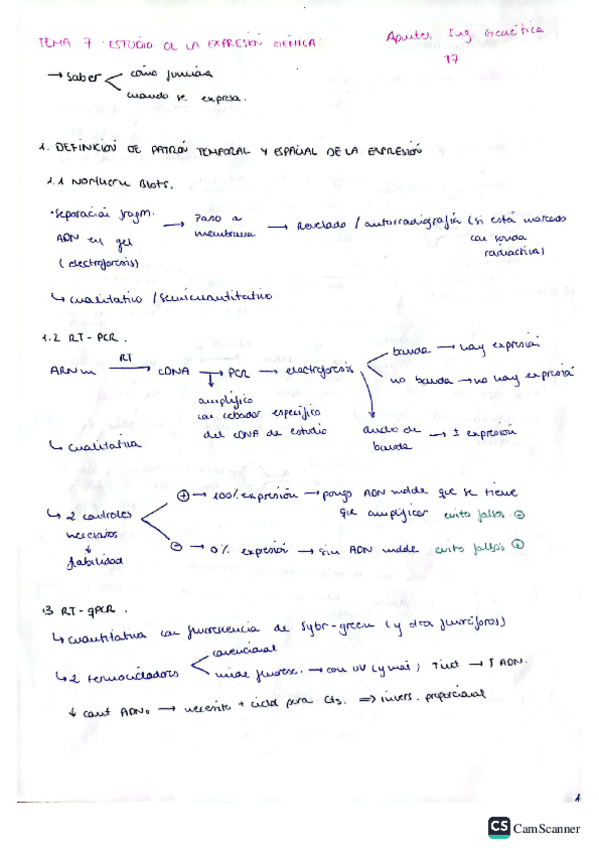 TEMA 7 ESTUDIO DE LA EXPRESIÓN GÉNICA
Apuntes Ing. Genética
17
→ Saber
cómo funciona
cuando se expresa.
1. DEFINICIÓN DE PATRÓN TEMPORAL Y ESPACIAL DE LA EXPRESIÓN
1.1 Northern Blots.
·Separación fragm. ADN en gel (electroforesis) → Paso a membrana → Revelado / autorradiografía (si está marcado con sonda radiactiva)
↳ cualitativo / semicuantitativo
1.2 RT-PCR.
ARNm →RT cDNA → PCR → electroforesis
banda → hay expresión
no banda → no hay expresión
ancho de banda → ± expresión
amplifico con cebador específico del cDNA de estudio
↳ cualitativa
↳ 2 controles necesarios ↓ fiabilidad
⊕ → 100% expresión → pongo ADN molde que se tiene que amplificar evito fallos ⊖
⊖ → 0% expresión → sin ADN molde evito fallos ⊕
1.3 RT-qPCR.
↳ cuantitativa con fluorescencia de Sybr-green (y otros fluoróforos)
↳ 2 termocicladores
convencional
mide fluoresc. → con UV (y mai) ↑ int → ↑ ADN.
↓ cant ADN₀ → necesito + ciclos para Cts. ⇒ invers. proporcional
1
CS CamScanner